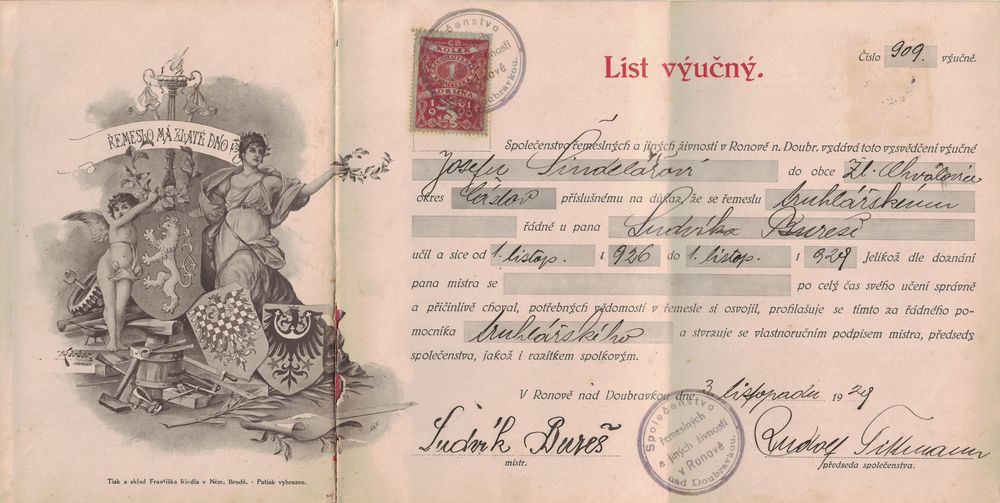 ŘEMESLO MÁ ZLATÉ DNO
Tisk a sklad Františka Riedla v Něm. Brodě. - Patisk vyhrazen.
Společenstvo
KOLEK
1
KORUNA
1919
List výučný.
Číslo 909. výučné.
Společenstvo řemeslných a jiných živností v Ronově n. Doubr. vydává toto vysvědčení výučné
Josefu Šindelářovi do obce Zl. Chvalovice
okres Čáslav příslušnému na důkaz, že se řemeslu truhlářskému
řádně u pana Ludvíka Bureše
učil a sice od 1. listop. 1 926 do 1. listop. 1 929 Jelikož dle doznání
pana mistra se po celý čas svého učení správně
a přičinlivě choval, potřebných vědomostí v řemesle si osvojil, prohlašuje se tímto za řádného po-
mocníka truhlářského a stvrzuje se vlastnoručním podpisem mistra, předsedy
společenstva, jakož i razítkem spolkovým.
V Ronově nad Doubravkou dne 3 listopadu 1929
Ludvík Bureš
mistr.
Společenstvo
řemeslných
a jiných živností
v Ronově
nad Doubravkou.
Rudolf
předseda společenstva.